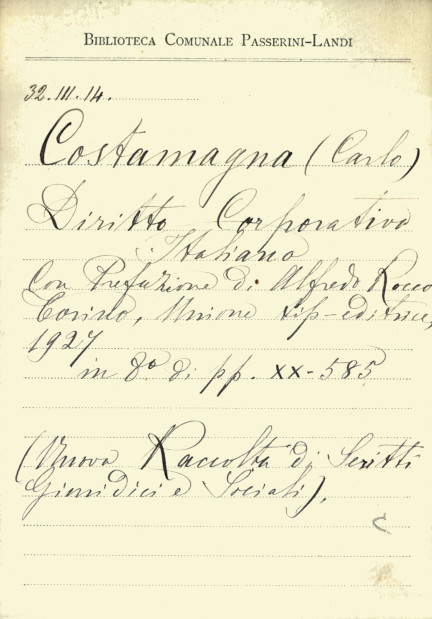 BIBLIOTECA COMUNALE PASSERINI-LANDI
32.III.14.
Costamagna (Carlo)
Diritto Corporativo
Italiano
Con Prefazione di Alfredo Rocco
Torino, Unione tip-editrice,
1927
in 8º di pp. XX-585
(Nuova Raccolta di Scritti
Giuridici e Sociali).
C